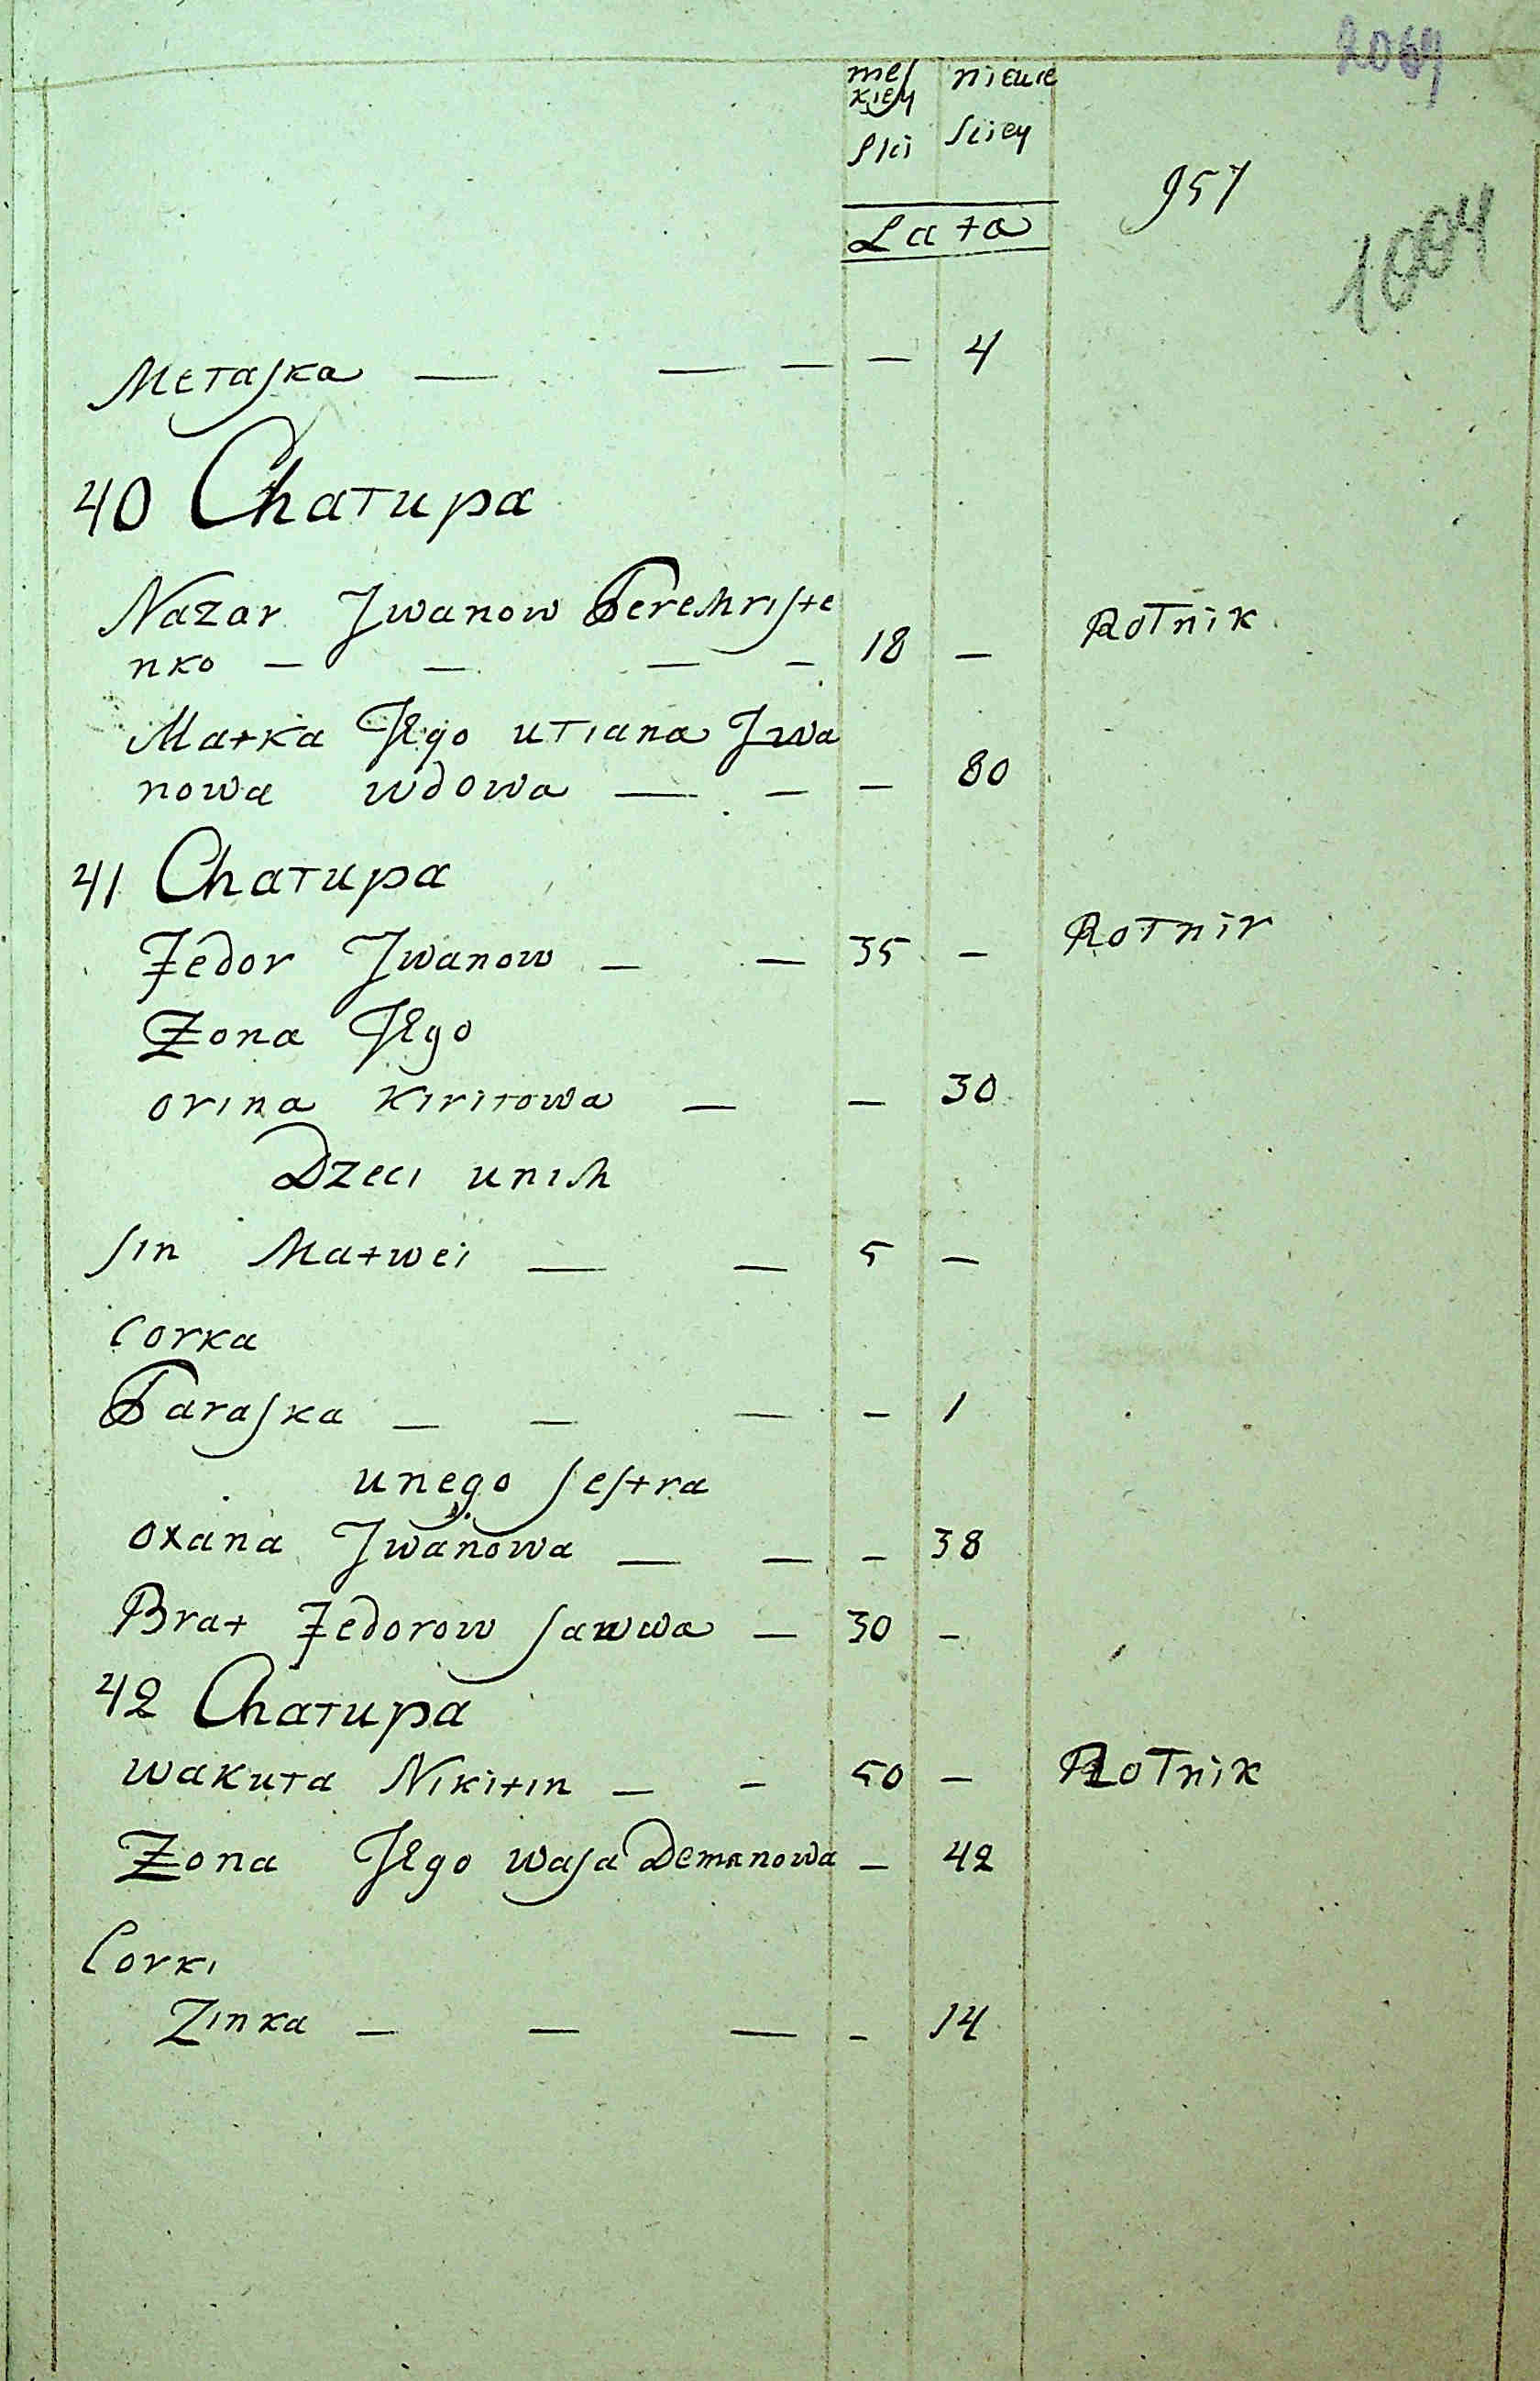 2069
męſ niewie
kiey
płci ſciey
957
Lata
1004
Mełaſka — — — — 4
40 Chałupa
Nazar Jwanow Perechriſte
nko — — — — 18 — Rolnik
Matka Jego uliana Jwa
nowa wdowa — — — 80
41 Chałupa
Fedor Jwanow — — 35 — Rolnik
Zona Jego
orina Kiriłowa — — 30
Dzeci unich
ſin Matwei — — 5 —
Corka
Paraſka — — — — 1
unego ſeſtra
oxana Jwanowa — — — 38
Brat Fedorow ſawwa — 30 —
42 Chałupa
wakuła Nikitin — — 50 — Rolnik
Zona Jego waſa Demanowa — 42
Corki
Zinka — — — — 14